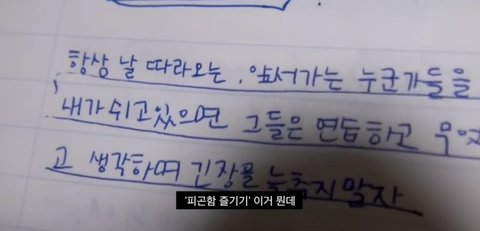 항상 날 따라오는, 앞서가는 누군가들을
내가 쉬고있으면 그들은 연습하고
고 생각하며 긴장을 늦추지말자
'피곤함 즐기기' 이거 뭔데